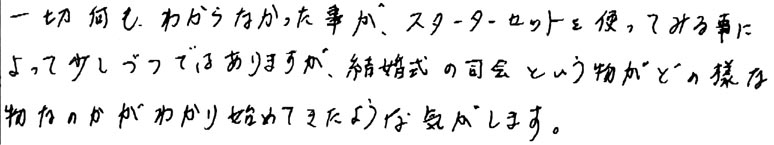 一切何も、わからなかった事が、スターターセットを使ってみる事に
よって少しづつではありますが、結婚式の司会という物がどの様な
物なのかがわかり始めてきたような気がします。